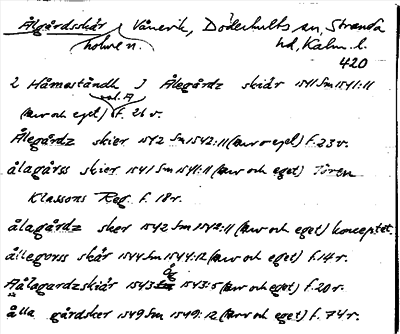 Ålgårdsskär Vånevik, Döderhults sn, Stranda
holme n. hd, Kalm. l.
420
i Håmeståndh J Ålegårdz skiär 1541 Sm 1541:11
(arv och eget) f. 26 v.
Ålegårdz skier 1542 Sm 1542:11 (arv o eget) f. 23 v.
ålagårss skier 1541 Sm 1541:11 (arv och eget) Tören
Klassons Reg. f. 18 r.
ålagårdz sker 1542 Sm 1542:11 (arv och eget) konceptet.
ållegorss skår 1544 Sm 1544:12 (arv och eget) f. 14 r.
Aålagardzskiär 1543 Ög 1543:5 (arv och eget) f. 20 r.
ålla gårdsker 1549 Sm 1549:12 (arv och eget) f. 74 r.